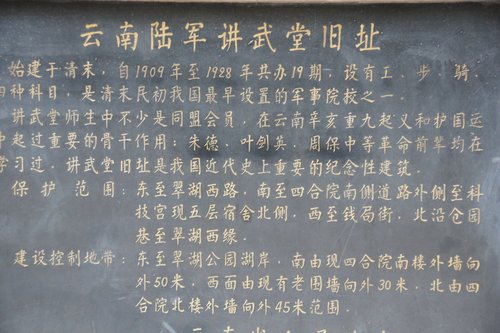 云南陆军讲武堂旧址
始建于清末，自1909年至1928年共办19期，设有工、步、骑、
四种科目，是清末民初我国最早设置的军事院校之一。
讲武堂师生中不少是同盟会员，在云南辛亥重九起义和护国运
中起过重要的骨干作用；朱德、叶剑英、周保中等革命前辈均在
学习过，讲武堂旧址是我国近代史上重要的纪念性建筑。
保护范围：东至翠湖西路，南至四合院南侧道路外侧至科
技宫现五层宿舍北侧，西至钱局街，北沿仓园
巷至翠湖西缘。
建设控制地带：东至翠湖公园湖岸，南由现四合院南楼外墙向
外50米，西面由现有老围墙向外30米，北由四
合院北楼外墙向外45米范围。